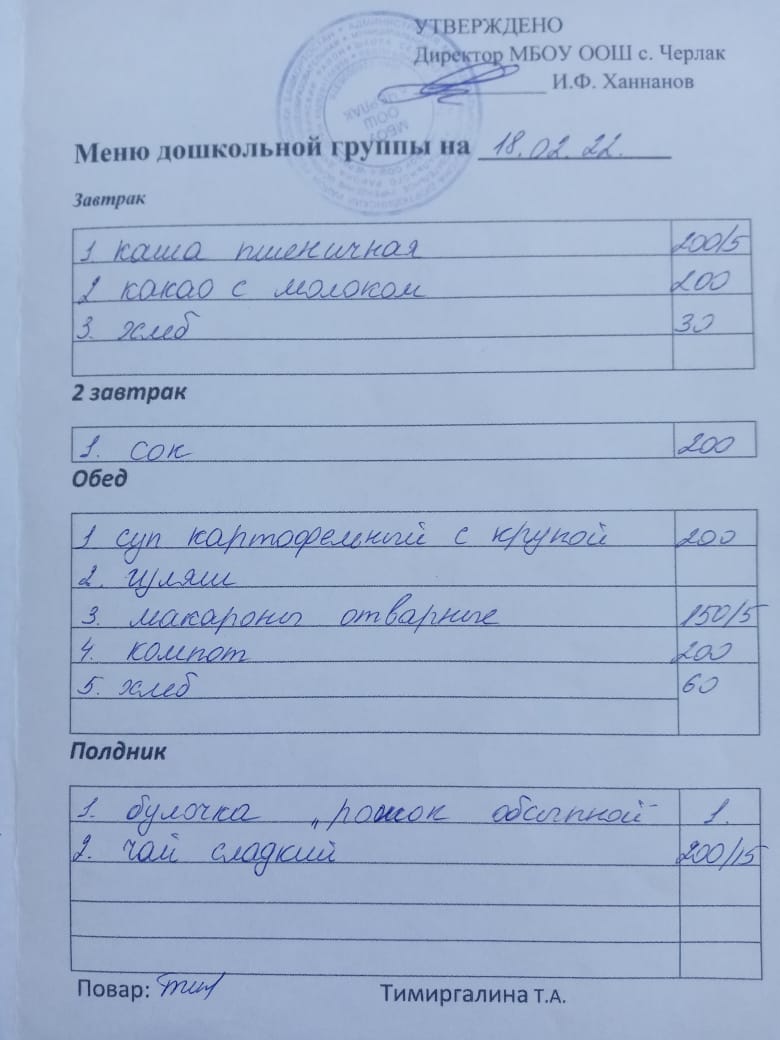 УТВЕРЖДЕНО
Директор МБОУ ООШ с. Черлак
И.Ф. Ханнанов
МБОУ
ООШ
ЧЕРЛАК
Меню дошкольной группы на 18.02.22.
Завтрак
1 каша пшеничная 200/5
2 какао с молоком 200
3. хлеб 30
2 завтрак
1. сок 200
Обед
1 суп картофельный с крупой 200
2. гуляш
3. макароны отварные 150/5
4. компот 200
5. хлеб 60
Полдник
1. булочка „рожок обсыпной 1.
2. чай сладкий 200/15
Повар: Тимиргалина Т.А.